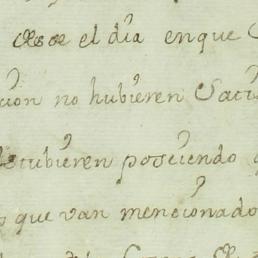 desde el dia en que
cion no hubieren
estubieren poseiendo
que van mencionado